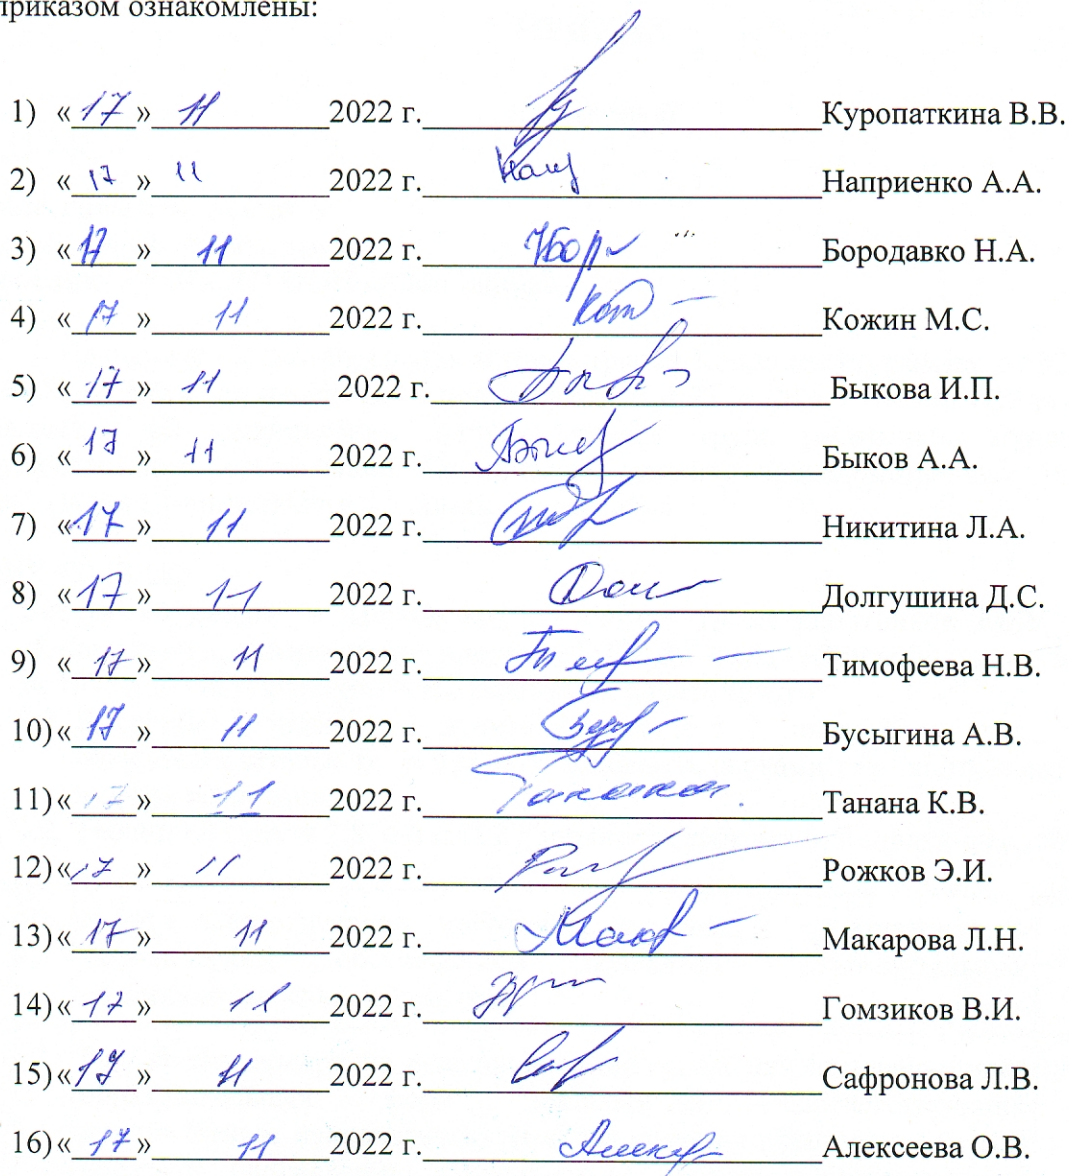 приказом ознакомлены:
1) «17» 11 2022 г. Куропаткина В.В.
2) «17» 11 2022 г. Наприенко А.А.
3) «17» 11 2022 г. Бородавко Н.А.
4) «17» 11 2022 г. Кожин М.С.
5) «17» 11 2022 г. Быкова И.П.
6) «17» 11 2022 г. Быков А.А.
7) «17» 11 2022 г. Никитина Л.А.
8) «17» 11 2022 г. Долгушина Д.С.
9) «17» 11 2022 г. Тимофеева Н.В.
10) «17» 11 2022 г. Бусыгина А.В.
11) «17» 11 2022 г. Танана К.В.
12) «17» 11 2022 г. Рожков Э.И.
13) «17» 11 2022 г. Макарова Л.Н.
14) «17» 11 2022 г. Гомзиков В.И.
15) «17» 11 2022 г. Сафронова Л.В.
16) «17» 11 2022 г. Алексеева О.В.